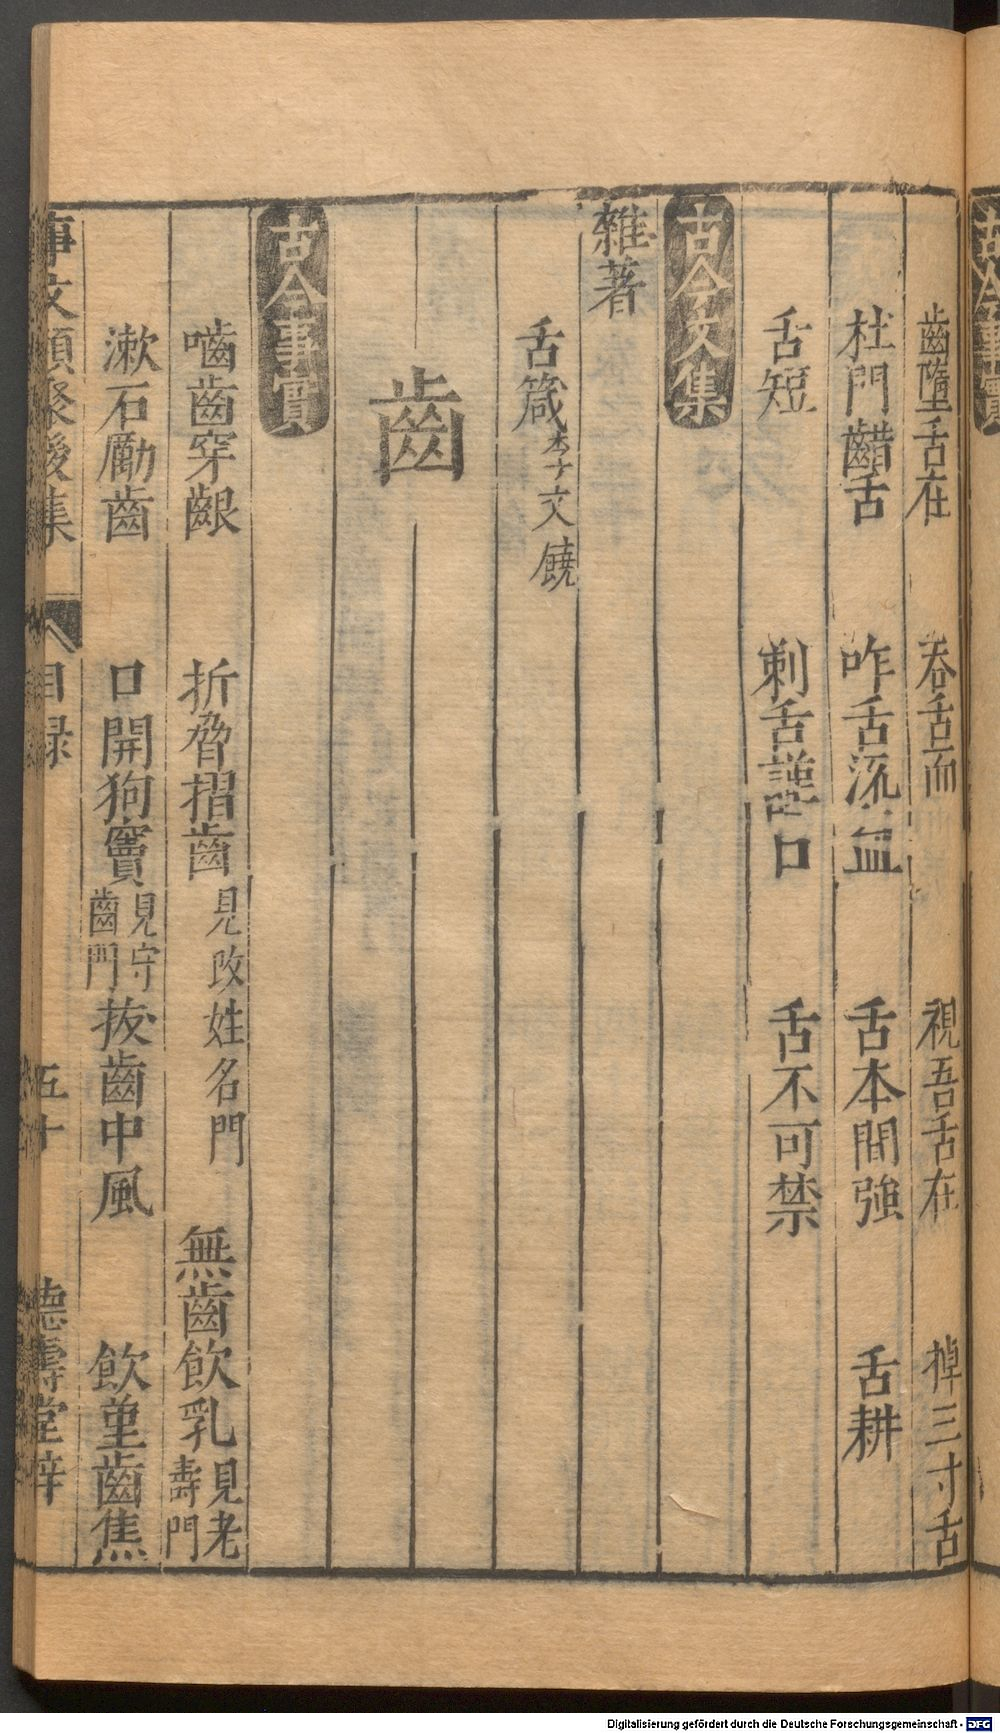 齒墮舌在　吞舌而　視吾舌在　掉三寸舌
杜門齰舌　咋舌流血　舌本間強　舌耕
舌短　刺舌謹口　舌不可禁
古今文集
雜著
舌箴李文饒
齒
古今事實
嚙齒穿齦　折脅摺齒見改姓名門　無齒飲乳見老壽門
漱石勵齒　口開狗竇見守齒門　拔齒中風　飲堇齒焦
事文類聚後集　目錄　五十　德壽堂梓
古今事實
Digitalisierung gefördert durch die Deutsche Forschungsgemeinschaft - DFG